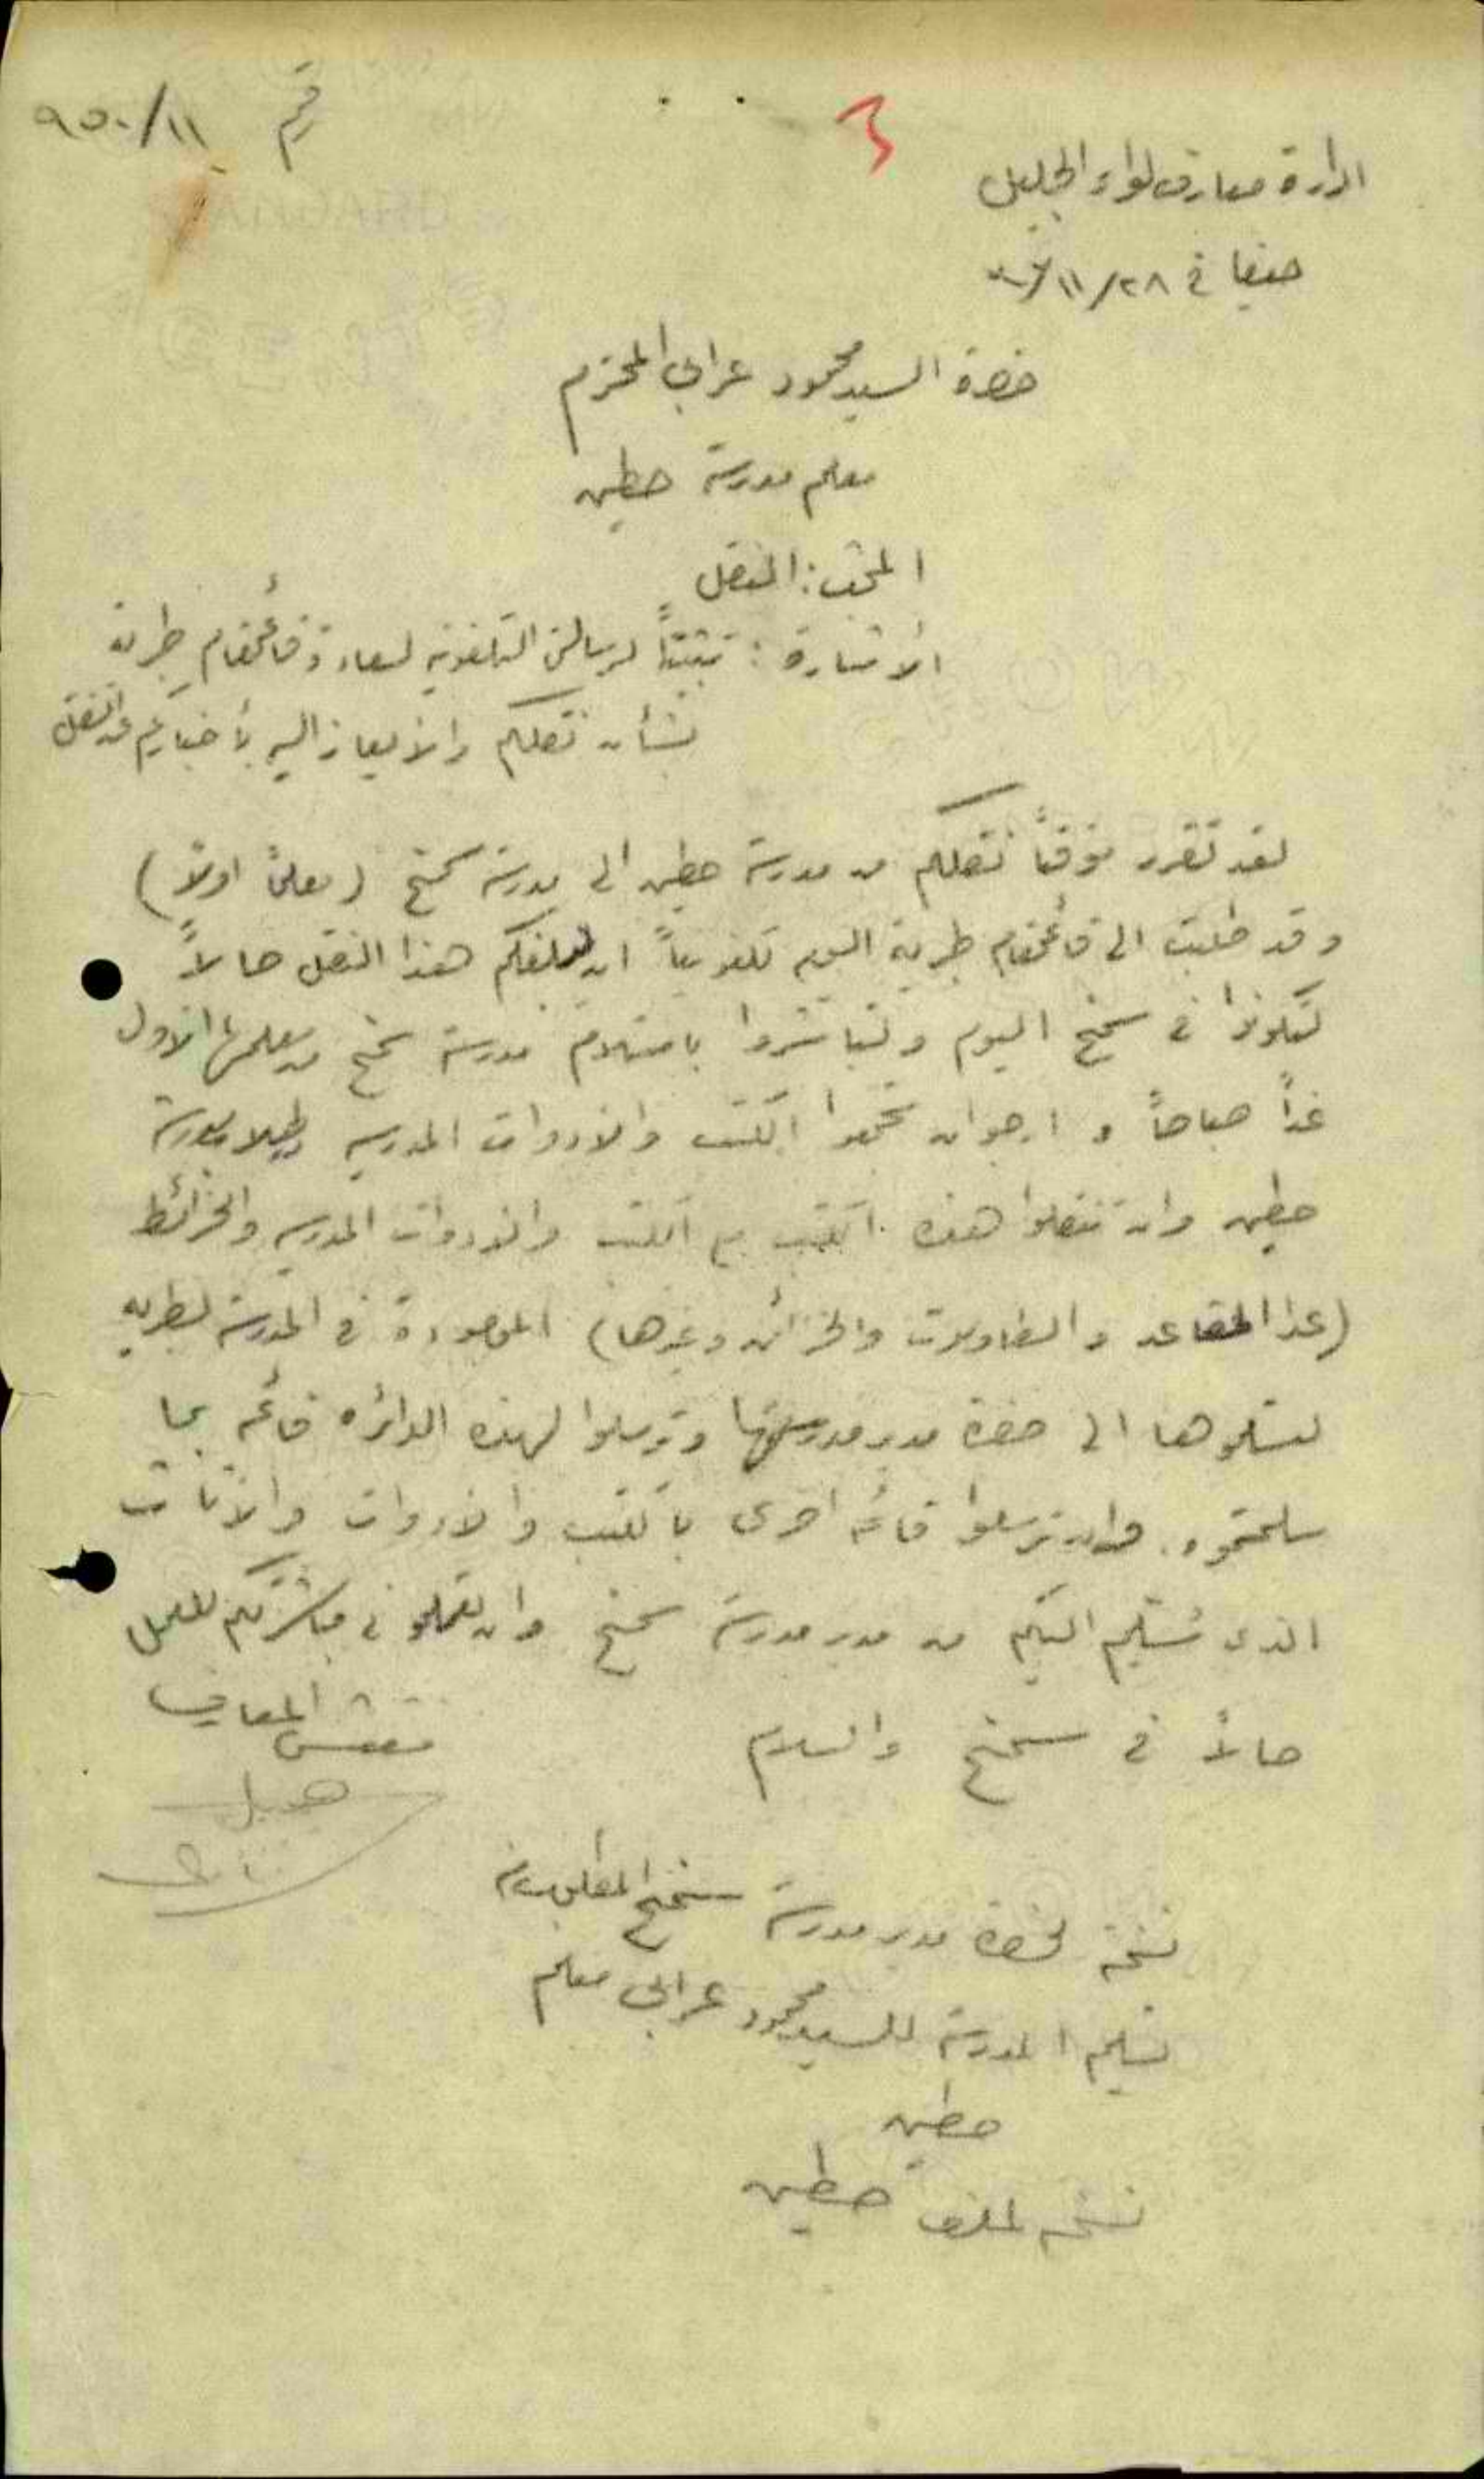 رقم ٩٥٠/١١
ادارة معارف لواء الجليل
حيفا في ٢٨/١١/
حضرة السيد محمود عرابي المحترم
معلم مدرسة حطين
المبحث: النقل
الاشارة: تثبيتاً لرسالتي التلفونية لسعادة قائمقام طبرية
بشأن نقلكم والايعاز اليه بأخباركم عن النقل
لقد تقرر مؤقتاً نقلكم من مدرسة حطين الى مدرسة سمخ (معلماً اولاً)
وقد طلبت الى قائمقام طبرية اليوم تلفونياً ان يبلغكم هذا النقل حالاً
لتكونوا في سمخ اليوم ولتباشروا باستلام مدرسة سمخ من معلمها الاول
غداً صباحاً و ارجو ان تجمعوا الكتب والادوات المدرسية
حطين وان تنقلوا هذه الكتب مع الكتب والادوات المدرسية والخرائط
(عدا المقاعد والطاولات والخزائن وغيرها) الموجودة في المدرسة لطبريه
لتسلموها الى حضرة مدير مدرستها وترسلوا لهذه الدائره قائمه بما
سلمتموه. وان ترسلوا قائمه اخرى بالكتب والادوات والأثاث
الذي سُيسلم اليكم من مدير مدرسة سمخ وان تعملوا في مباشرتكم للعمل
حالاً في سمخ والسلام
مفتش المعارف
نسخة لحضرة مدير مدرسة سمخ المطلوب منه
تسليم المدرسة للسيد محمود عرابي معلم
حطين
نسخه لملف حطين